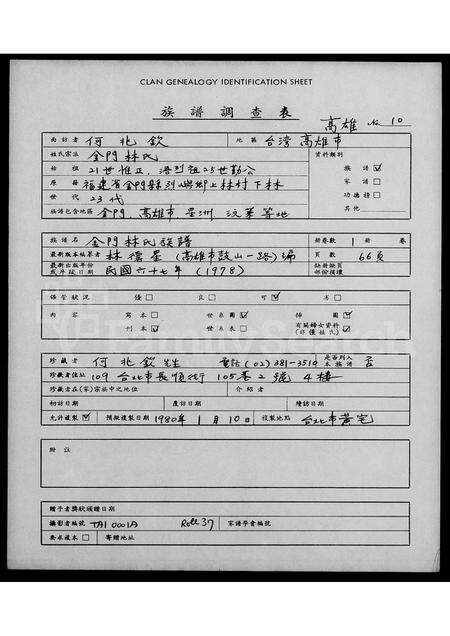 CLAN GENEALOGY IDENTIFICATION SHEET
族譜調查表
高雄 No 10
面訪者 何兆欽 地區 台灣高雄市
姓氏宗派 金門林氏 資料類別
始祖 21世惟正 族譜 ☑
原籍 福建省金門縣列嶼鄉上林村下林 家譜 □
世代 23代 功德榜 □
族譜包含地區 金門,高雄市 星洲 汶萊等地 其他
族譜名 金門林氏族譜 新卷數 1 新 卷
最新版本編纂者 林德星 (高雄市鼓山一路) 頁數 66頁
最新出版年份或年版日期 民國六十七年 (1978)
保管狀況 優 □ 良 □ 可 ☑ 劣 □
內容 寫本 □ 世系圖 ☑ 插圖 ☑
刊本 ☑ 世系表 □
珍藏者 何兆欽先生 電話 (02)381-3519 是否列入本族譜 否
珍藏者住址 109 台北市長順街105巷2號4樓
珍藏者在(家)宗族中之地位 介紹者
初訪日期 產訪日期 續訪日期
允許複製 ☑ 預擬複製日期 1980年1月10日 複製地點 台北市黃宅
附註
贈予者獎狀頒贈日期
攝影者編號 TAI 0001A Roll 37 家譜學會編號
要求複本 □ 寄贈地址